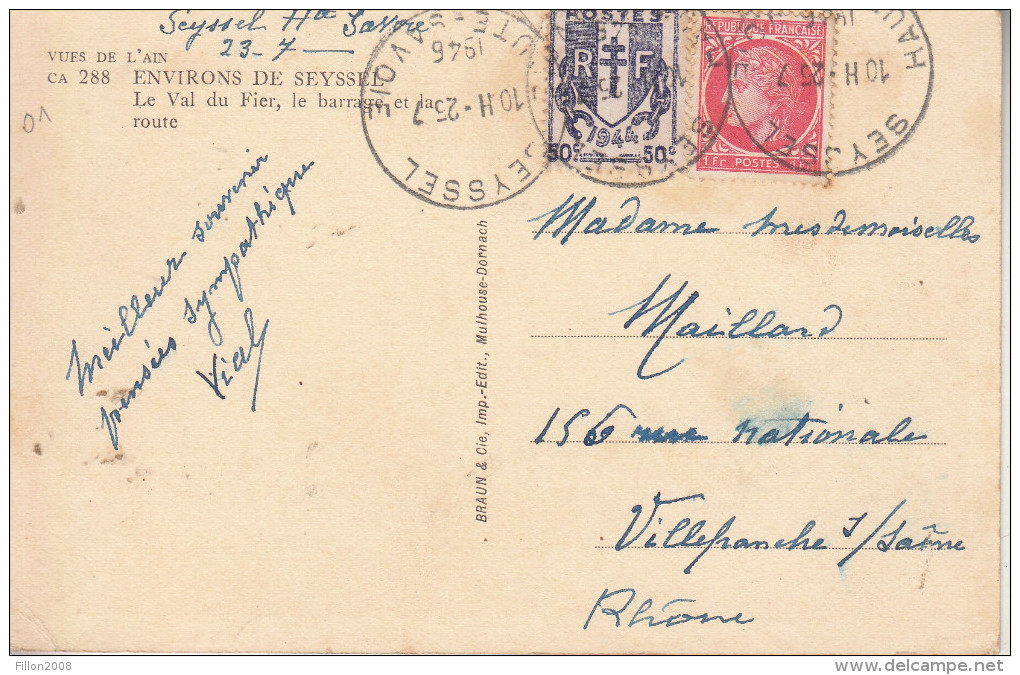 Seyssel Hte Savoie
23-7
VUES DE L'AIN
CA 288 ENVIRONS DE SEYSSEL
Le Val du Fier, le barrage et la
route
01
Meilleur souvenir
pensées sympathique
Vial
BRAUN & Cie, Imp.-Edit., Mulhouse-Dornach
POSTES
R F
1944
50c 50c
REPUBLIQUE FRANÇAISE
1Fr POSTES
SEYSSEL
10 H - 23.7
1946
SEYSSEL
10 H 25 7
1946
Madame mesdemoiselles
Maillard
156 rue nationale
Villefranche s/Saône
Rhône
Fillon2008
www.delcampe.net